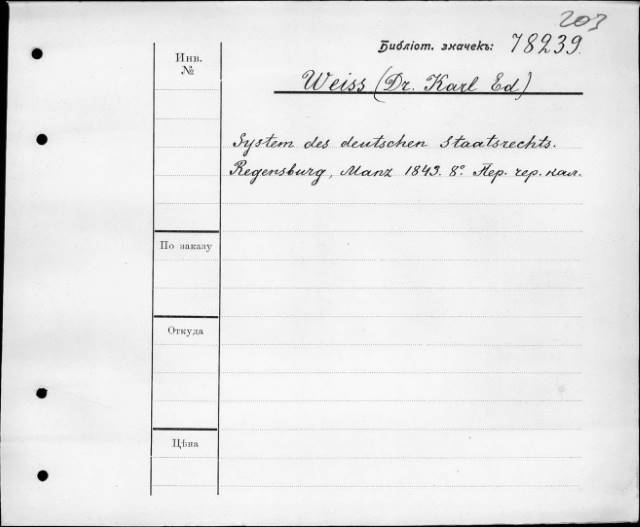 203
Библіот. значекъ: 78239.
Инв.
№
Weiss (Dr. Karl Ed)
System des deutschen Staatsrechts.
Regensburg, Manz 1843. 8° Пер. чер. кал.
По заказу
Откуда
Цѣна